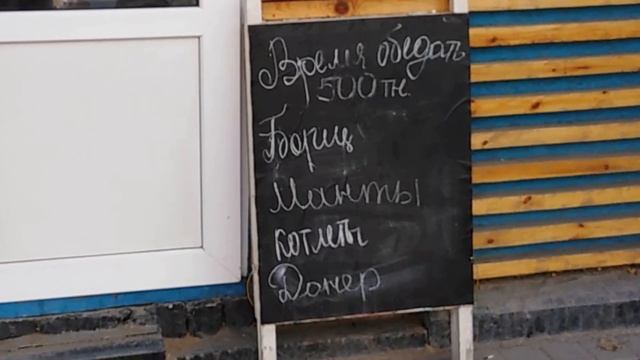 Время обедать
500тн.
Борщ
Манты
котлеты
Донер